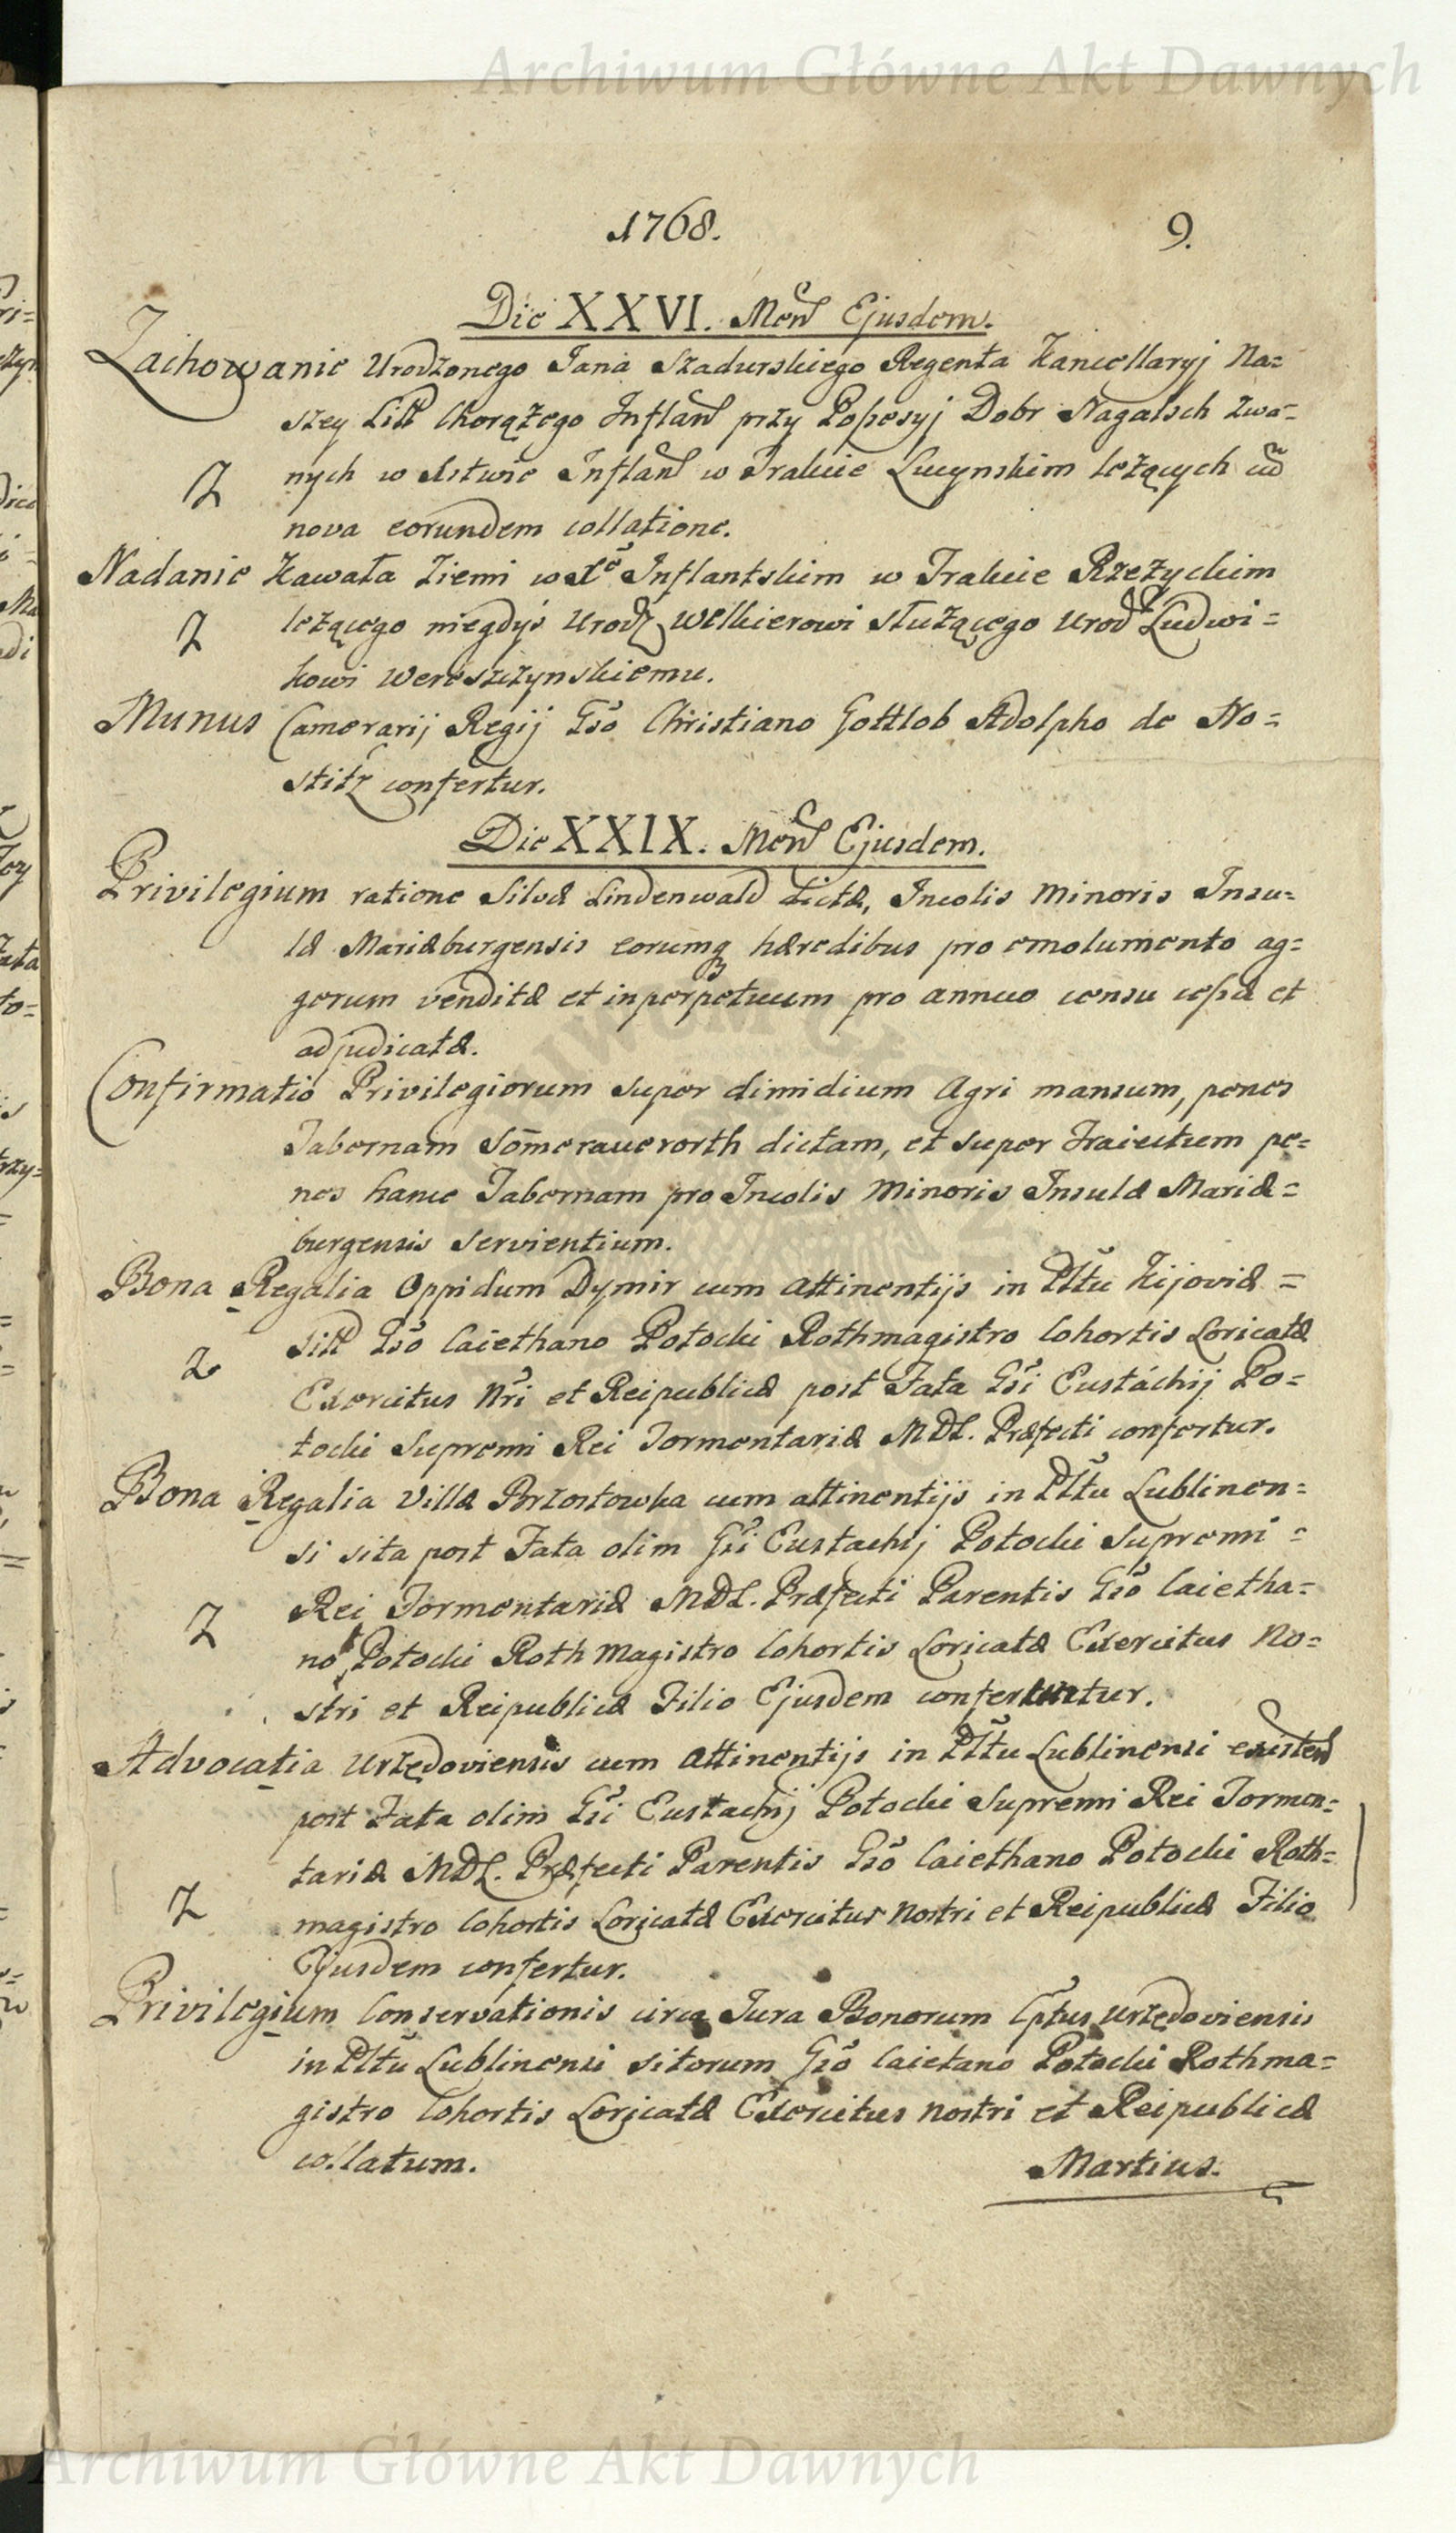 Archiwum Główne Akt Dawnych
1768.
9.
Die XXVI. Men̄ Ejusdem.
Zachowanie Urodzonego Jana Szadurskiego Regenta Kancellaryj Na=
szey Litt Chorążego Inflan̄ przy Possesyj Dobr Nagalsch zwa=
Z nych w Xstwie Inflan̄ w Trakcie Lucynskim leżących cū
nova eorundem collatione.
Nadanie Kawała Ziemi w Xe Inflantskim w Trakcie Rzeżyckim
Z leżącego niegdyś Urodz Welkierowi służącego Urodz Ludwi=
kowi Wereszczynskiemu.
Munus Camerarij Regij Gso Christiano Gottlob Adolpho de No=
stitz confertur.
Die XXIX. Men̄ Ejusdem.
Privilegium ratione Silvæ Lindenwald dictæ, Incolis Minoris Insu=
læ Mariæburgensis eorumq hæredibus pro emolumento ag=
gerum venditæ et in perpetuum pro annuo censu cessæ et
adjudicatæ.
Confirmatio Privilegiorum super dimidium Agri mansum, penes
Tabernam Som̄erauerorth dictam, et super Traiectum pe=
nes hanc Tabernam pro Incolis Minoris Insulæ Mariæ=
burgensis Servientium.
Bona Regalia Oppidum Dymir cum attinentijs in Pltū Kijoviæ=
sitt Gso Caiethano Potocki Rothmagistro Cohortis Loricatæ
Z Exercitus Nri et Reipublicæ post Fata Gsi Eustachij Po=
tocki Supremi Rei Tormentariæ MDL. Præfecti confertur.
Bona Regalia Villæ Brzostowka cum attinentijs in Pltū Lublinen=
si sita post Fata olim Gsi Eustachij Potocki Supremi=
Rei Tormentariæ MDL. Præfecti Parentis Gso Caietha=
Z no Potocki Rothmagistro Cohortis Loricatæ Exercitus No=
stri et Reipublicæ Filio Ejusdem conferuntur.
Advocatia Urzędoviensis cum attinentijs in Pltū Lublinensi existen̄
post Fata olim Gsi Eustachij Potocki Supremi Rei Tormen=
tariæ MDL. Præfecti Parentis Gso Caiethano Potocki Roth=
Z magistro Cohortis Loricatæ Exercitus Nostri et Reipublicæ Filio
Ejusdem confertur.
Privilegium Conservationis circa Jura Bonorum Cptus Urzędoviensis
in Pltū Lublinensi sitorum Gso Caietano Potocki Rothma=
gistro Cohortis Loricatæ Exercitus nostri et Reipublicæ
collatum.
Martius.
Archiwum Główne Akt Dawnych